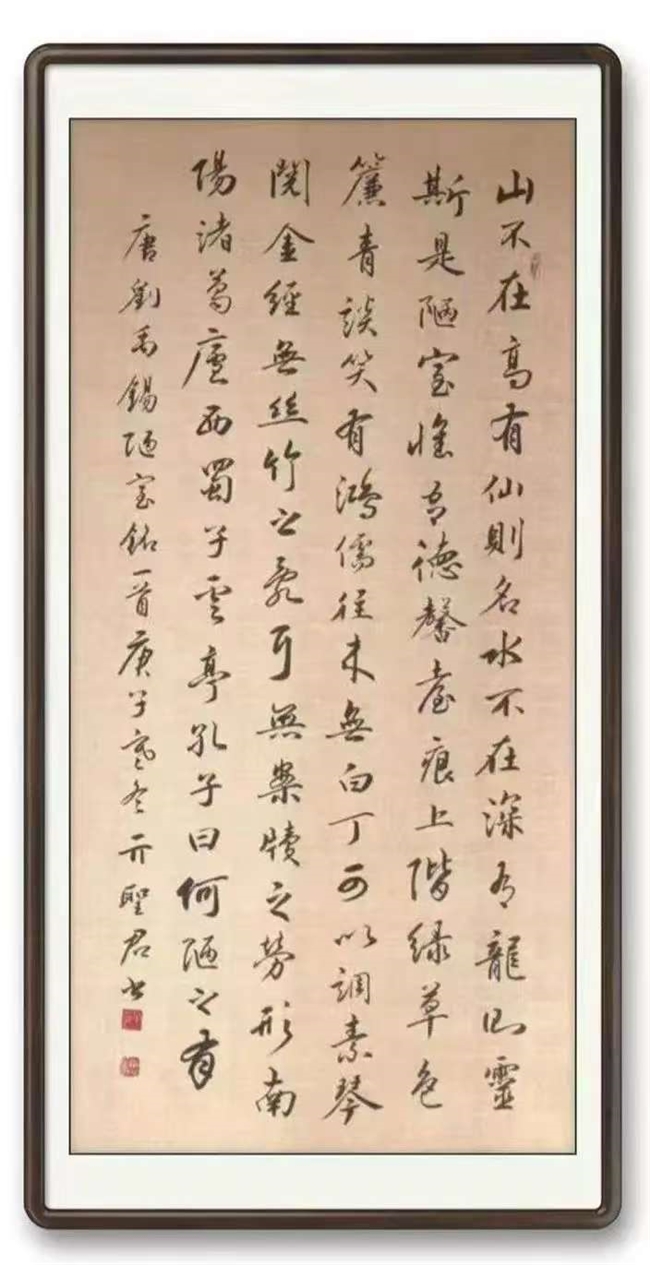 山不在高有仙則名水不在深有龍則靈
斯是陋室惟吾德馨苔痕上階綠草色
簾青談笑有鴻儒往來無白丁可以調素琴
閱金經無絲竹之亂耳無案牘之勞形南
陽諸葛廬西蜀子雲亭孔子曰何陋之有
唐劉禹錫陋室銘一首庚子寒冬亓聖君書